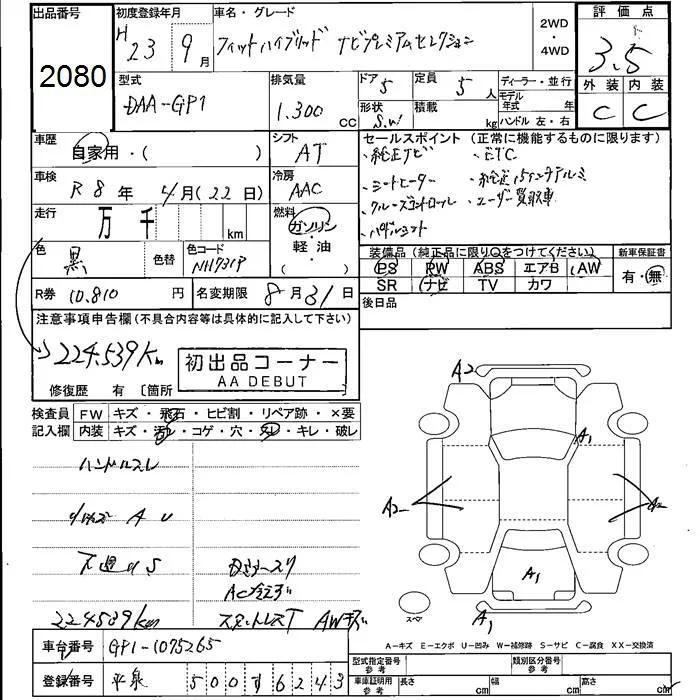 出品番号 初度登録年月 車名・グレード 2WD・4WD 評価点
2080 H 23 9月 フィットハイブリッド ナビプレミアムセレクション 3.5
型式 排気量 ドア 5 定員 5人 ディーラー・並行 外装 内装
DAA-GP1 1.300 CC 形状 S.W 積載 kg モデル年式 年 C C
ハンドル 左・右
車歴 シフト セールスポイント (正常に機能するものに限ります)
自家用・( ) AT ・純正ナビ ・ETC
車検 冷房 ・シートヒーター ・純正15インチアルミ
R 8年 4月(22日) AAC ・クルーズコントロール ・ユーザー買取車
走行 万 千 km 燃料 ガソリン・軽油・( ) ・パドルシフト
色 黒 色替 色コード NH731P 装備品 (純正品に限り○をつけてください) 新車保証書
PS PW ABS エアB AW 有・無
SR ナビ TV カワ
R券 10.810円 名変期限 8月31日 後日品
注意事項申告欄(不具合内容等は具体的に記入して下さい)
224.539Km 初出品コーナー
AA DEBUT
修復歴 有 〔箇所
検査員 FW キズ・飛石・ヒビ割・リペア跡・×要
記入欄 内装 キズ・汚レ・コゲ・穴・スレ・キレ・破レ
ハンドルスレ
A U
224539km AWキズ
A2
A1
A2
A2
A1
スペア
A1
A-キズ E-エクボ U-凹み W-補修跡 S-サビ C-腐食 XX-交換済
車台番号 GP1-1075265 型式指定番号 参考 類別区分番号 参考
登録番号 500す6243 車庫証明用 参考 長さ cm 幅 cm 高さ cm